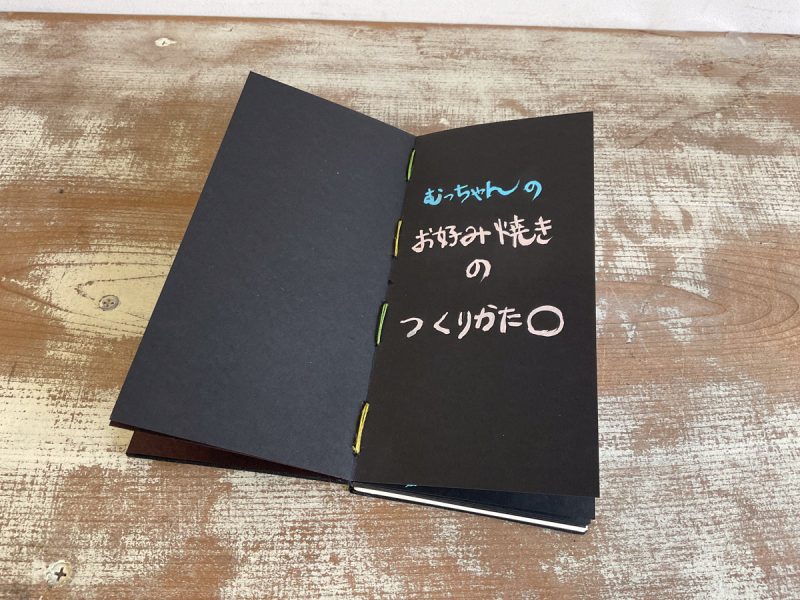 むっちゃんの
お好み焼き
の
つくりかた〇